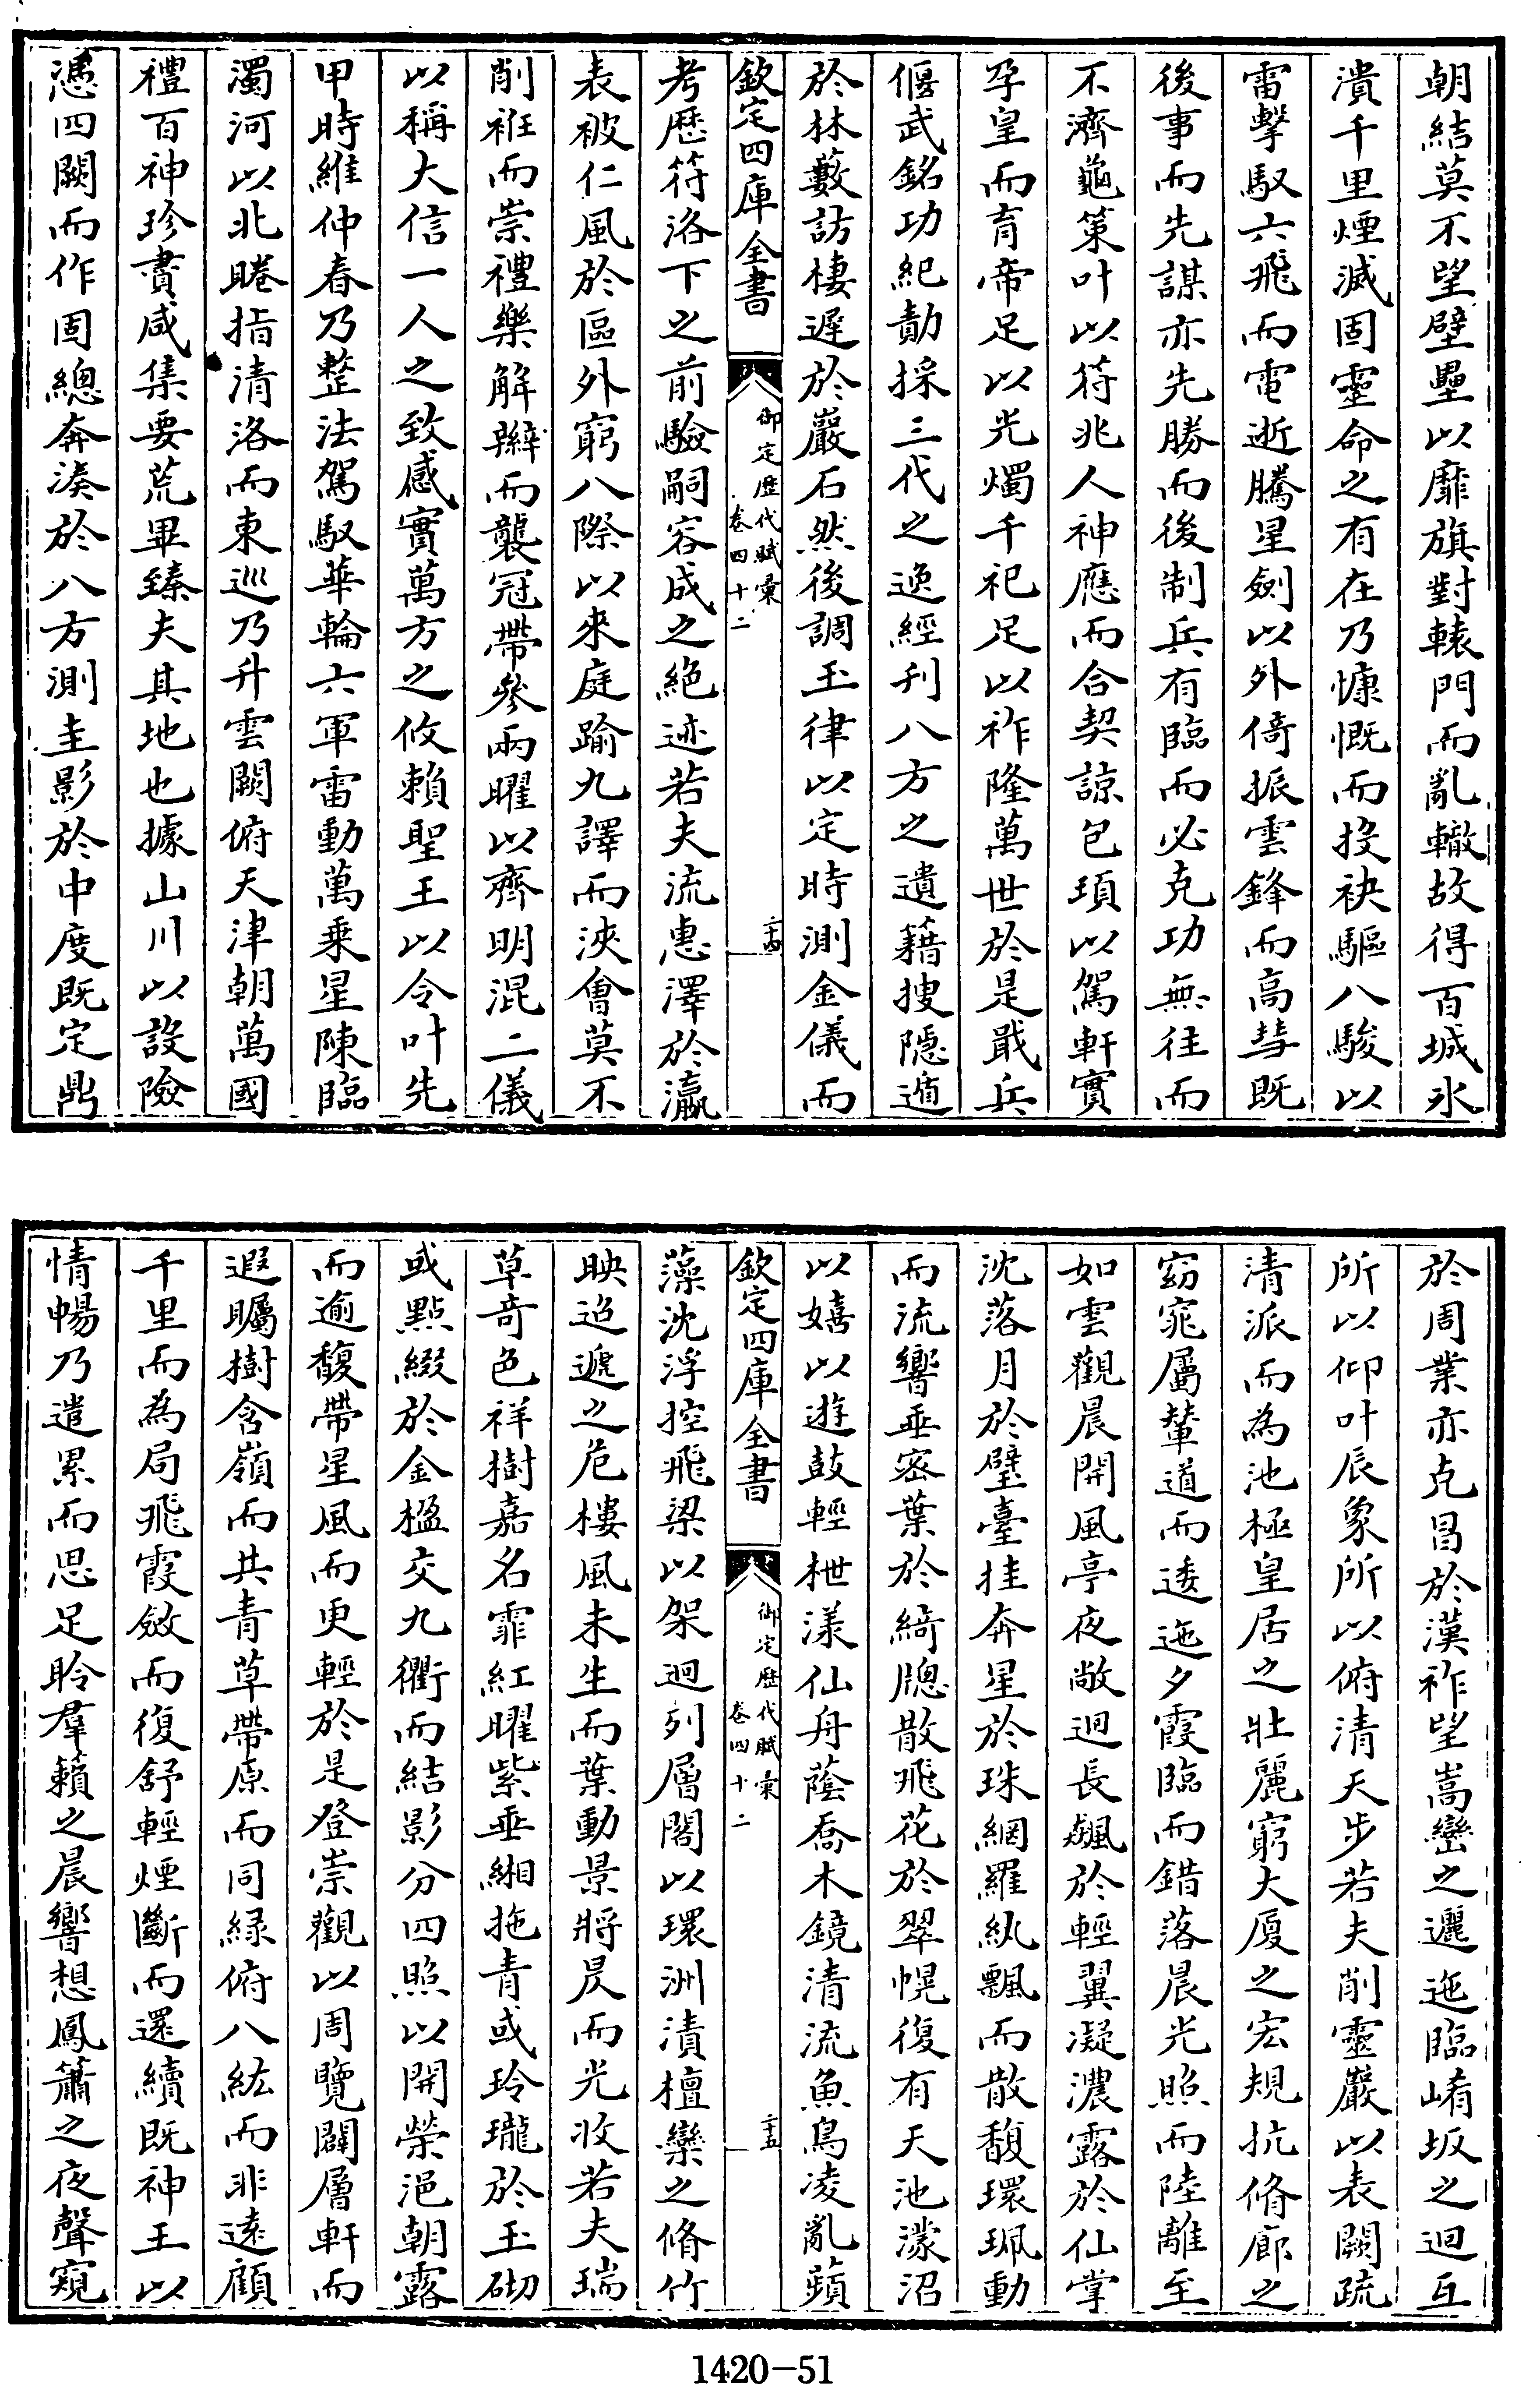 朝結莫不望壁壘以靡旗對轅門而亂轍故得百城氷
潰千里煙滅固靈命之有在乃慷慨而投袂驅八駿以
雷擊馭六飛而電逝騰星劍以外倚振雲鋒而高彗既
後事而先謀亦先勝而後制兵有臨而必克功無往而
不濟龜策叶以符兆人神應而合契諒包項以駕軒實
孕皇而育帝足以光燭千祀足以祚隆萬世於是戢兵
偃武銘功紀勣採三代之逸經刋八方之遺籍搜隠遁
於林藪訪棲遲於巖石然後調玉律以定時測金儀而
欽定四庫全書
御定歴代賦彙
卷四十二
二十四
考歴符洛下之前驗嗣容成之絶迹若夫流惠澤於瀛
表被仁風於區外窮八際以來庭踰九譯而浹會莫不
削袵而崇禮樂解辮而襲冠帶參兩曜以齊明混二儀
以稱大信一人之致感實萬方之攸賴聖王以令叶先
甲時維仲春乃整法駕馭華輪六軍雷動萬乗星陳臨
濁河以北睠指清洛而東巡乃升雲闕俯天津朝萬國
禮百神珍賮咸集要荒畢臻夫其地也據山川以設險
憑四闕而作固總奔湊於八方測圭影於中度既定鼎
於周業亦克昌於漢祚望嵩巒之邐迤臨崤坂之迴互
所以仰叶辰象所以俯清天步若夫削靈巖以表闕疏
清派而為池極皇居之壯麗窮大厦之宏規抗脩廊之
窈窕屬輦道而逶迤夕霞臨而錯落晨光照而陸離至
如雲觀晨開風亭夜敞迴長飆於輕翼凝濃露於仙掌
沈落月於璧臺挂奔星於珠網羅紈飄而散馥環珮動
而流響垂密葉於綺牎散飛花於翠幌復有天池濛沼
以嬉以遊鼓輕枻漾仙舟蔭喬木鏡清流魚鳥凌亂蘋
欽定四庫全書
御定歴代賦彙
卷四十二
二十五
藻沈浮控飛梁以架迴列層閣以環洲漬檀欒之脩竹
映迢遞之危樓風未生而葉動景將昃而光收若夫瑞
草竒色祥樹嘉名霏紅曜紫垂緗拖青或玲瓏於玉砌
或點綴於金楹交九衢而結影分四照以開榮浥朝露
而逾馥帶星風而更輕於是登崇觀以周覽闢層軒而
遐矚樹含嶺而共青草帶原而同緑俯八紘而非遠顧
千里而為局飛霞斂而復舒輕煙斷而還續既神王以
情暢乃遣累而思足聆羣籟之晨響想鳳簫之夜聲窺
1420-51